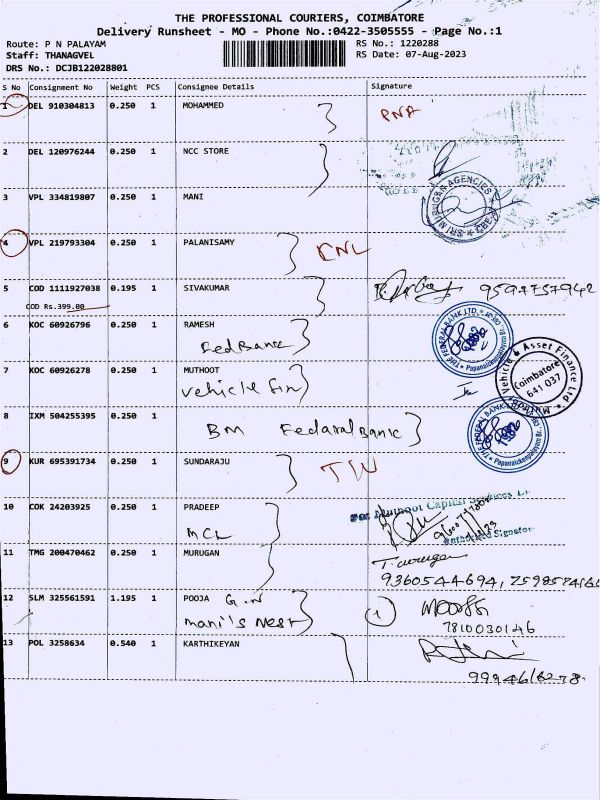 THE PROFESSIONAL COURIERS, COIMBATORE
Delivery Runsheet - MO - Phone No.:0422-3505555 - Page No.:1
Route: P N PALAYAM
RS No.: 1220288
Staff: THANAGVEL
RS Date: 07-Aug-2023
DRS No.: DCJB122028801
S No Consignment No Weight PCS Consignee Details Signature
1 DEL 910304813 0.250 1 MOHAMMED
PNA
2 DEL 120976244 0.250 1 NCC STORE
3 VPL 334819807 0.250 1 MANI
SRI MURUGAN AGENCIES
4 VPL 219793304 0.250 1 PALANISAMY
CNL
5 COD 1111927038 0.195 1 SIVAKUMAR
9597757942
COD Rs.399.00
6 KOC 60926796 0.250 1 RAMESH
Fed Bank
THE FEDERAL BANK LTD.
7 KOC 60926278 0.250 1 MUTHOOT
Vehicle fin
Vehicle & Asset Finance Ltd
Coimbatore
641 037
8 IXM 504255395 0.250 1
BM Fedaral Bank
THE FEDERAL BANK
9 KUR 695391734 0.250 1 SUNDARAJU
10 COK 24203925 0.250 1 PRADEEP
MCL
For Muthoot Capital Services
Authorized Signatory
11 TMG 200470462 0.250 1 MURUGAN
T. Murugan
9360544694,
12 SLM 325561591 1.195 1 POOJA G.N
Mani's Nest
1
7810030146
13 POL 3258634 0.540 1 KARTHIKEYAN